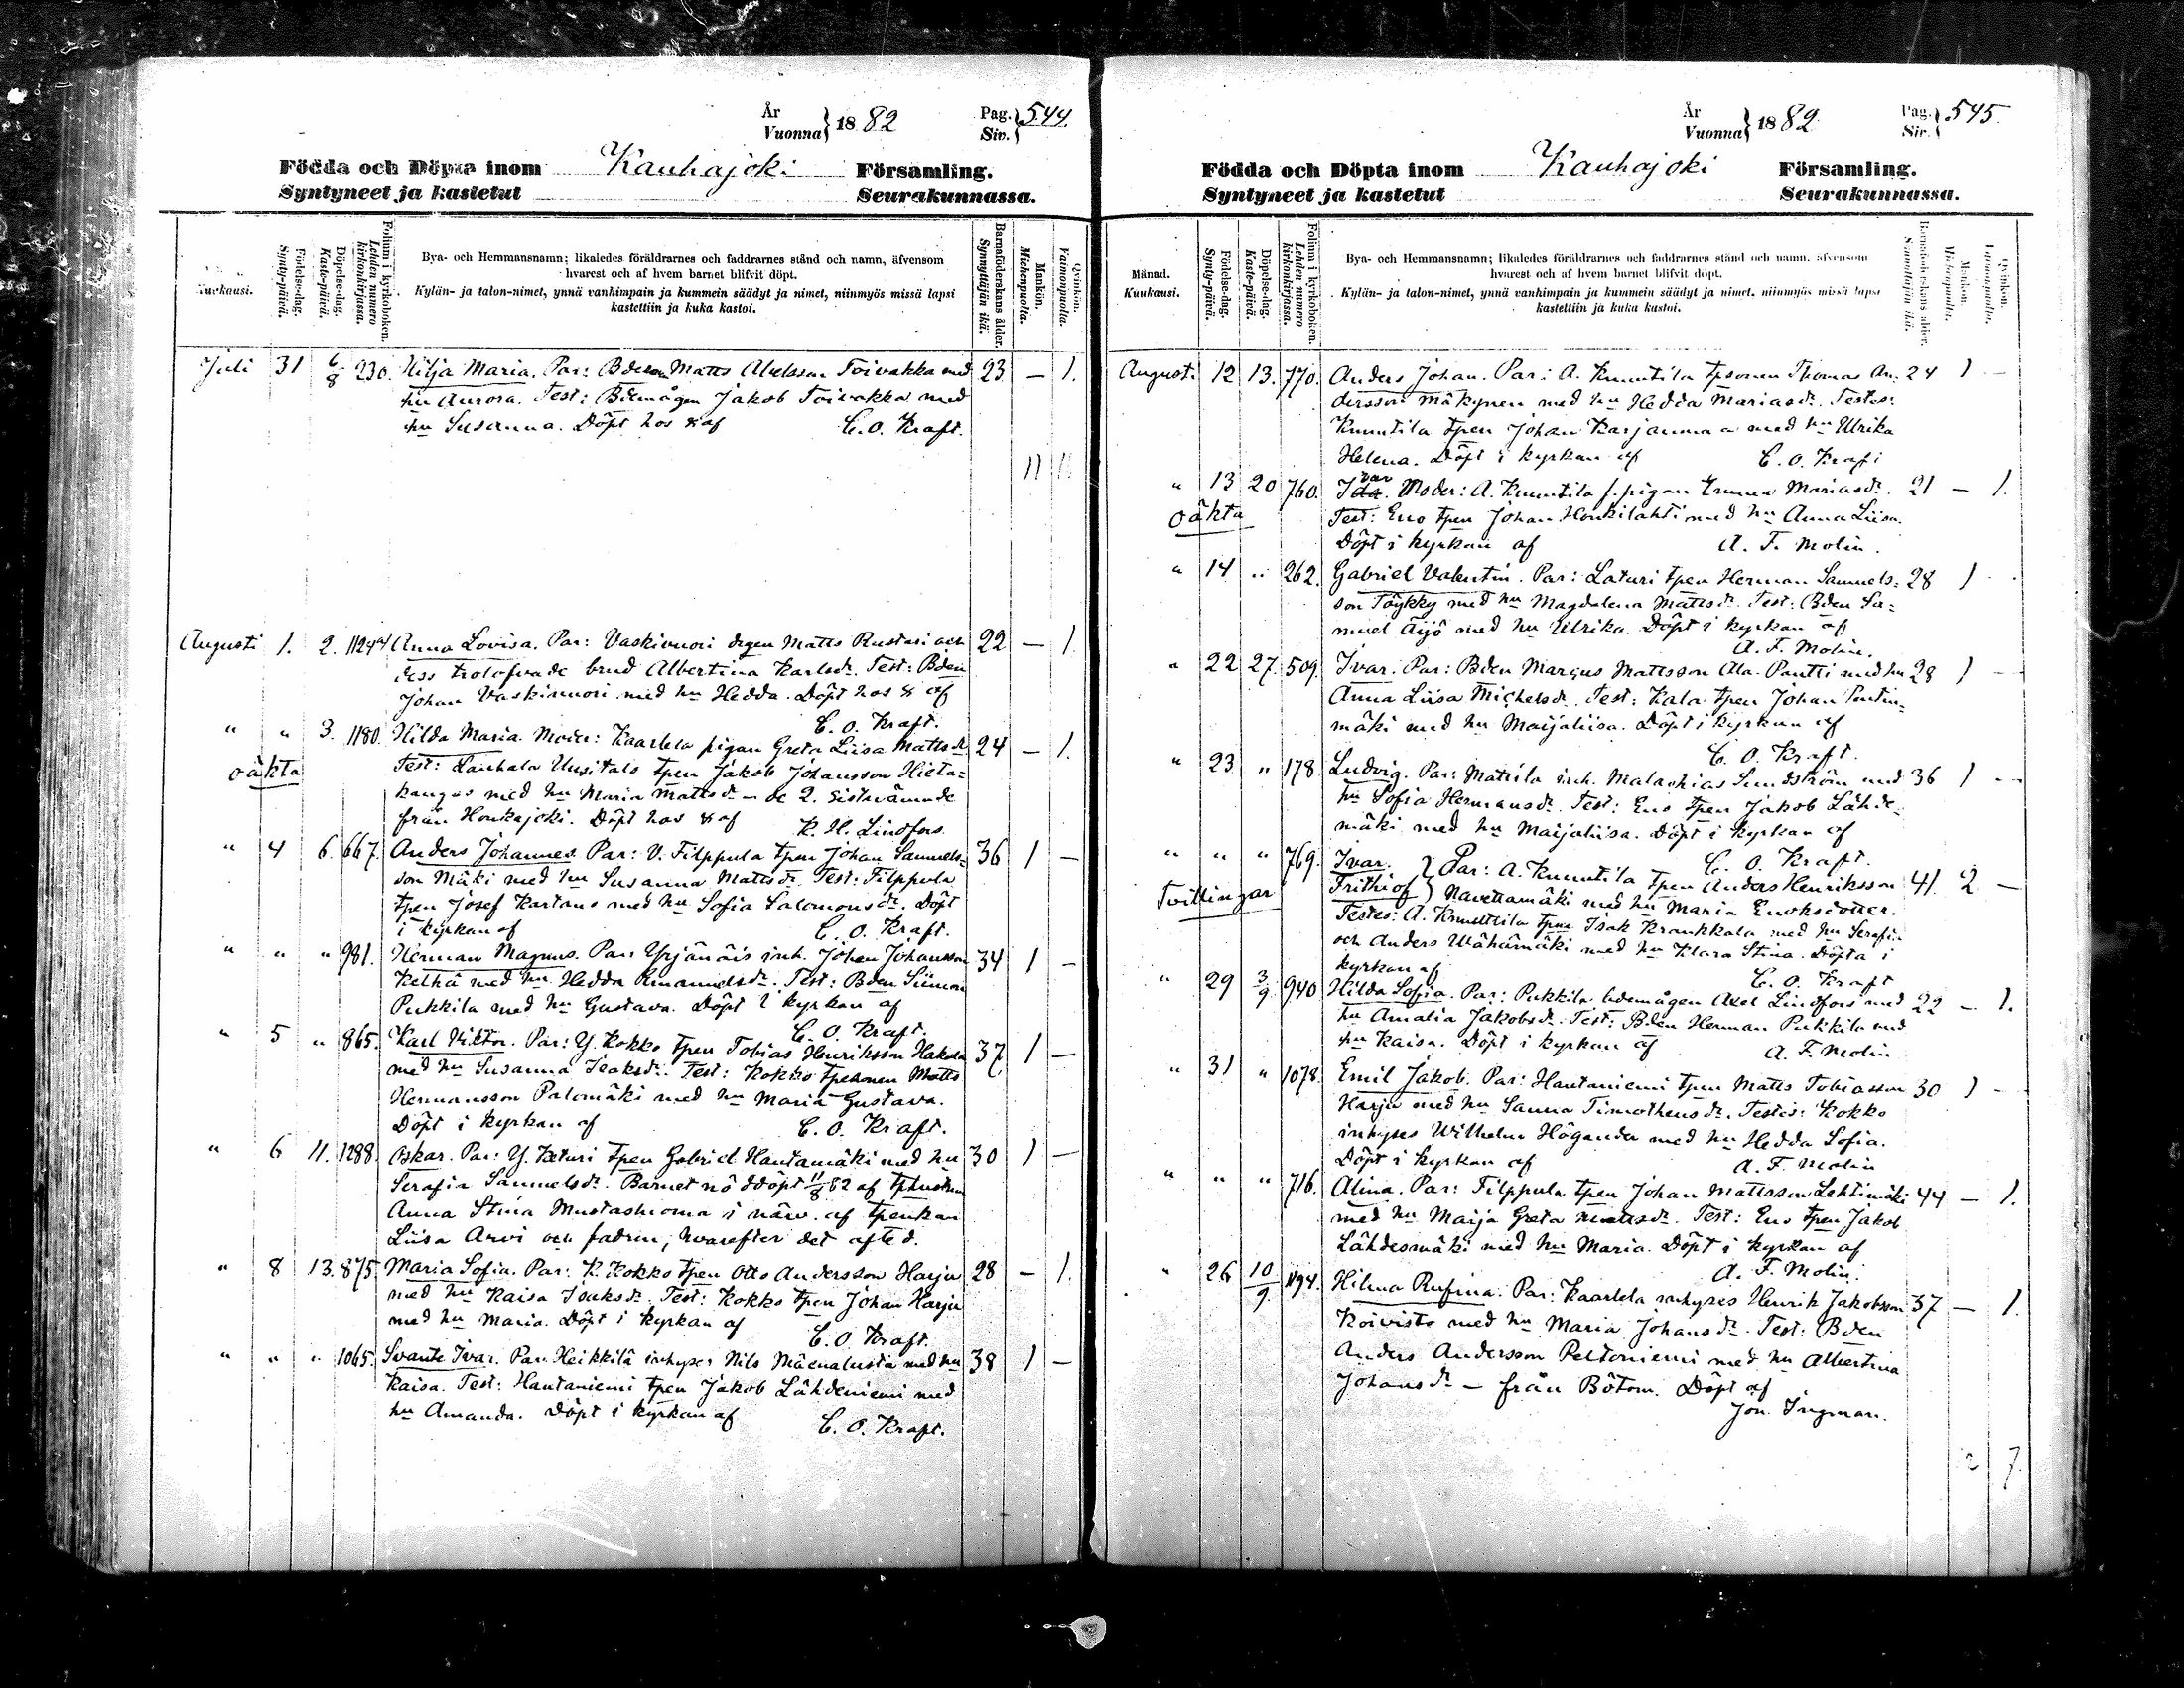 År
Vuonna } 1882
Pag.
Siv. } 544.
Födda och Döpta inom Kauhajoki Församling.
Syntyneet ja kastetut Seurakunnassa.
Kuukausi.
Födelse-dag.
Synty-päivä.
Döpelse-dag.
Kaste-päivä.
Folium i kyrkoboken.
Lehden numero kirkonkirjassa.
Bya- och Hemmansnamn; likaledes föräldrarnes och faddrarnes stånd och namn, äfvensom
hvarest och af hvem barnet blifvit döpt.
Kylän- ja talon-nimet, ynnä vanhimpain ja kummein säädyt ja nimet, niinmyös missä lapsi
kastettiin ja kuka kastoi.
Barnaföderskans ålder.
Synnyttäjän ikä.
Mankön.
Miehenpuolta.
Qvinkön.
Vaimonpuolta.
Juli 31 6/8 230. Hilja Maria. Par: Matts Toivakka med 23 — 1.
hu Aurora. Test: Bdemågen Jakob Toivakka med
hu Susanna. Döpt hos & af C. O. Kraft.
11 11
Augusti 1. 2. 1124 Anna Lovisa. Par: Vaskivuori drgen Matts Rustari och 22 — 1.
dess trolofvade brud Albertina Karlsdr. Test: Bden
Johan Vaskivuori med hu Hedda. Döpt hos & af
C. O. Kraft.
" " 3. 1180. Hilda Maria. Moder: Kaarlela pigan Greta Liisa Mattsdr 24 — 1.
oäkta Test: Lauhala Uusitalo tpen Jakob Johansson Hieta=
kangas med hu Maria Mattsdr — de 2. sistnämnde
från Honkajoki. Döpt hos & af K. H. Lindfors.
" 4 6. 667. Anders Johannes. Par: V. Filppula tpen Johan Samuels= 36 1 —
son Mäki med hu Susanna Mattsdr. Test: Filppula
tpen Josef Kartano med hu Sofia Salomonsdr. Döpt
i kyrkan af C. O. Kraft.
" " " 981. Herman Magnus. Par: Yrjänäis inh. Johan Johansson 34 1 —
Kelthä med hu Hedda Emanuelsdr. Test: Bden Simon
Pukkila med hu Gustava. Döpt i kyrkan af
C. O. Kraft.
" 5 " 865. Karl Viktor. Par: Y. Kokko tpen Tobias Henriksson Hakala 37 1 —
med hu Susanna Isaksdr. Test: Kokko tpesonen Matts
Hermansson Palomäki med hu Maria Gustava.
Döpt i kyrkan af C. O. Kraft.
" 6 11. 1288. Oskar. Par: Y. tpen Gabriel Hautamäki med hu 30 1 —
Serafia Samuelsdr. Barnet nöddöpt 11/8 82 af tphustrun
Anna Stina Mustashioma i närv. af tpenkan
Liisa Arvi och fadren, hvarefter det afled.
" 8 13. 875 Maria Sofia. Par: K. Kokko tpen Otto Andersson Harju 28 — 1.
med hu Kaisa Isaksdr. Test: Kokko tpen Johan Harju
med hu Maria. Döpt i kyrkan af
C. O. Kraft.
" " " 1065. Svante Ivar. Par. Heikkilä inhyses Nils Mäenalusta med hu 38 1 —
Kaisa. Test: Hautaniemi tpen Jakob Lähdeniemi med
hu Amanda. Döpt i kyrkan af
C. O. Kraft.
År
Vuonna } 1882
Pag.
Siv. } 545.
Födda och Döpta inom Kauhajoki Församling.
Syntyneet ja kastetut Seurakunnassa.
Månad.
Kuukausi.
Födelse-dag.
Synty-päivä.
Döpelse-dag.
Kaste-päivä.
Folium i kyrkoboken.
Lehden numero kirkonkirjassa.
Bya- och Hemmansnamn; likaledes föräldrarnes och faddrarnes stånd och namn, äfvensom
hvarest och af hvem barnet blifvit döpt.
Kylän- ja talon-nimet, ynnä vanhimpain ja kummein säädyt ja nimet, niinmyös missä lapsi
kastettiin ja kuka kastoi.
Barnaföderskans ålder.
Synnyttäjän ikä.
Mankön.
Miehenpuolta.
Qvinkön.
Vaimonpuolta.
Augusti 12 13. 770. Anders Johan. Par: A. Knuutila tpsonen Thomas An= 24 1 —
dersson Mäkynen med hu Hedda Mariasdr. Testes:
Knuutila tpen Johan Karjanmaa med hu Ulrika
Helena. Döpt i kyrkan af C. O. Kraft
" 13 20 760. Ida. var Moder: A. Knuutila f. pigan Emma Mariasdr. 21 — 1.
oäkta Test: Eno tpen Johan Honkilahti med hu Anna Liisa.
Döpt i kyrkan af A. F. Molin.
" 14 " 262. Gabriel Valentin. Par: Laturi tpen Herman Samuels= 28 1
son Töykky med hu Magdalena Mattsdr. Test: Bden Sa=
muel Äijö med hu Ulrika. Döpt i kyrkan af
A. F. Molin.
" 22 27. 509. Ivar. Par: Bden Marcus Mattsson Ala-Pantti med hu 28 1
Anna Liisa Michelsdr. Test: Kala tpen Johan Pentin=
mäki med hu Maijaliisa. Döpt i kyrkan af
C. O. Kraft.
" 23 " 178 Ludvig. Par: Mattila inh. Malachias Sundström med 36 1
hu Sofia Hermansdr. Test: Eno tpen Jakob Lähde=
mäki med hu Maijaliisa. Döpt i kyrkan af
C. O. Kraft.
" " " 769. Ivar. } Par: A. Knuutila tpen Anders Henriksson 41. 2 —
Tvillingar Frithiof } Navettamäki med hu Maria Enoksdotter.
Testes: A. Knuutila Isak Kraukkala med hu Serafia
och Anders Wähämäki med hu Klara Stina. Döpta i
kyrkan af C. O. Kraft
" 29 3/9. 940 Hilda Sofia. Par: Pukkila bdemågen Axel Lindfors med 22 — 1.
hu Amalia Jakobsdr. Test: Bden Herman Pukkila med
hu Kaisa. Döpt i kyrkan af A. F. Molin
" 31 " 1078. Emil Jakob. Par: Hautaniemi tpen Matts Tobiasson 30 1
Harju med hu Sanna Timotheusdr. Testes: Kokko
inhyses Wilhelm Höganda med hu Hedda Sofia.
Döpt i kyrkan af A. F. Molin
" " " 716. Alina. Par: Filppula tpen Johan Mattsson Lehtimäki 44 — 1.
med hu Maija Greta Mattsdr. Test: Eno tpen Jakob
Lähdesmäki med hu Maria. Döpt i kyrkan af
A. F. Molin.
" 26 10/9. 1194. Hilma Rufina. Par: Kaarlela inhyses Henrik Jakobsson 37 — 1.
Koivisto med hu Maria Johansdr. Test: Bden
Anders Andersson Peltoniemi med hu Albertina
Johansdr — från Bötom. Döpt af
Jon. Ingman.
2 7.